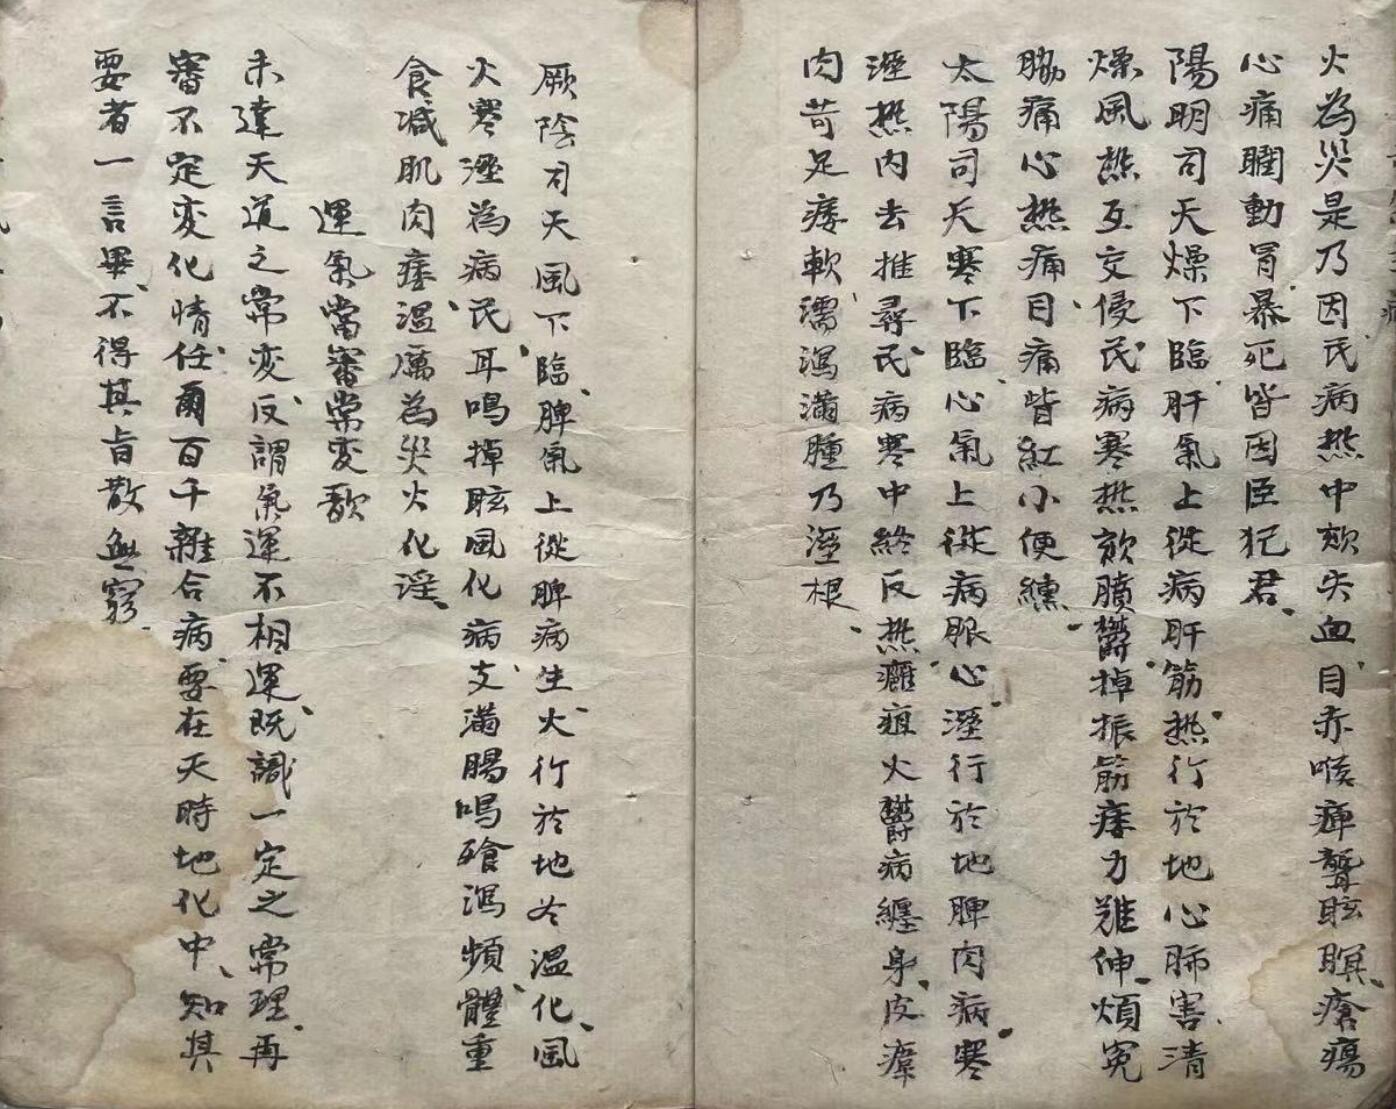 火為災是乃因民病熱中欬失血目赤喉痺聾眩瞑瘡瘍
心痛瞤動冒暴死皆因臣犯君
陽明司天燥下臨肝氣上從病肝筋熱行於地心肺害清
燥風熱互交侵民病寒熱欬膹鬱掉振筋痿力難伸煩冤
脇痛心熱痛目痛眥紅小便纁
太陽司天寒下臨心氣上從病脈心溼行於地脾肉病寒
溼熱內去推尋民病寒中終反熱癰疽火鬱病纏身皮𤸷
肉苛足痿軟濡瀉滿腫乃溼根
厥陰司天風下臨脾氣上從脾病生火行於地冬溫化風
火寒溼為病民耳鳴掉眩風化病支滿腸鳴飱瀉頻體重
食減肌肉痿溫厲為災火化淫
運氣當審常変歌
未達天道之常変反謂氣運不相運既識一定之常理再
審不定変化情任爾百千雜合病要在天時地化中知其
要者一言畢不得其旨散無窮